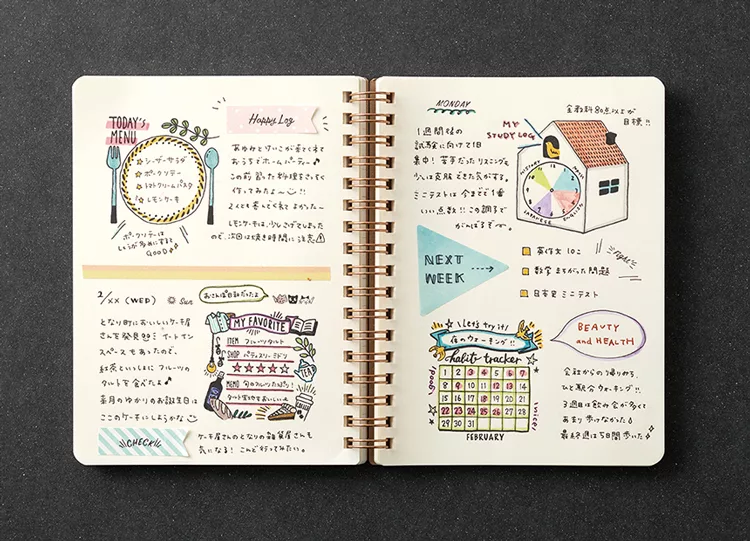 TODAY'S
MENU
シーザーサラダ
ポークソテー
トマトクリームパスタ
レモンケーキ
ポークソテーは
しょうが多めにすると
GOOD
Happy Log
あゆみとけいこが来てくれて
おうちでホームパーティー♪
この前習った料理をさっそく
作ってみたよ〜!!
2人とも喜んでくれてよかった〜
レモンケーキは、少しこげてしまった
ので、次回は焼き時間に注意
2/XX (WED)
Sun
おさんぽ日和だったよ
となり町においしいケーキ屋
さんを発見!! イートイン
スペースもあったので、
紅茶といっしょにフルーツの
タルトを食べたよ♪
来月のゆかりのお誕生日は
ここのケーキにしようかな
MY FAVORITE
ITEM フルーツタルト
SHOP パティスリーミドリ
★★★★☆
MEMO 旬のフルーツたっぷり!
タルト生地もおいしい
TEA
CHECK!!
ケーキ屋さんのとなりの雑貨屋さんも
気になる! こんど行ってみたい。
MONDAY
1週間後の
試験に向けて1日
集中! 苦手だったリスニングも
少しは克服できた気がする。
ミニテストは今までで1番
いい点数!! この調子で
がんばるぞ〜
MY
STUDY LOG
全教科80点以上が
目標!!
HISTORY
MATH
JAPANESE
ENGLISH
NEXT
WEEK
英作文 10こ
数学 まちがった問題
日本史 ミニテスト
Fight
Let's try it!
夜のウォーキング!!
habit tracker
1 2 3 4 5 6 7
8 9 10 11 12 13 14
15 16 17 18 19 20 21
22 23 24 25 26 27 28
29 30 31
FEBRUARY
Good
nice!
BEAUTY
and HEALTH
会社からの帰り道、
ひと駅分ウォーキング!!
3週目は飲み会が多くて
あまり歩けなかった
最終週は5日間歩いた